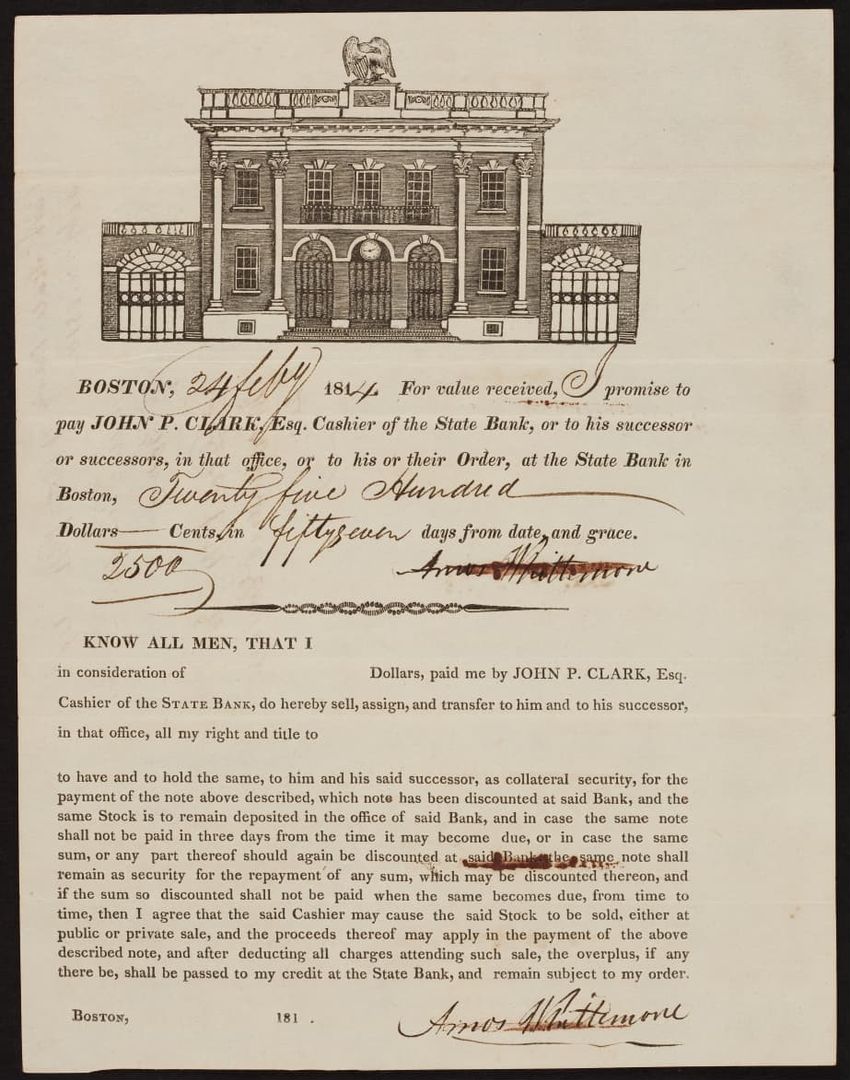 BOSTON, 24 feby 1814. For value received, I promise to
pay JOHN P. CLARK, Esq. Cashier of the State Bank, or to his successor
or successors, in that office, or to his or their Order, at the State Bank in
Boston, Twenty five Hundred
Dollars — Cents, in fiftyseven days from date, and grace.
2500 Amos Whittemore
KNOW ALL MEN, THAT I
in consideration of Dollars, paid me by JOHN P. CLARK, Esq.
Cashier of the STATE BANK, do hereby sell, assign, and transfer to him and to his successor,
in that office, all my right and title to
to have and to hold the same, to him and his said successor, as collateral security, for the
payment of the note above described, which note has been discounted at said Bank, and the
same Stock is to remain deposited in the office of said Bank, and in case the same note
shall not be paid in three days from the time it may become due, or in case the same
sum, or any part thereof should again be discounted at said Bank, the same note shall
remain as security for the repayment of any sum, which may be discounted thereon, and
if the sum so discounted shall not be paid when the same becomes due, from time to
time, then I agree that the said Cashier may cause the said Stock to be sold, either at
public or private sale, and the proceeds thereof may apply in the payment of the above
described note, and after deducting all charges attending such sale, the overplus, if any
there be, shall be passed to my credit at the State Bank, and remain subject to my order.
BOSTON, 181 . Amos Whittemore